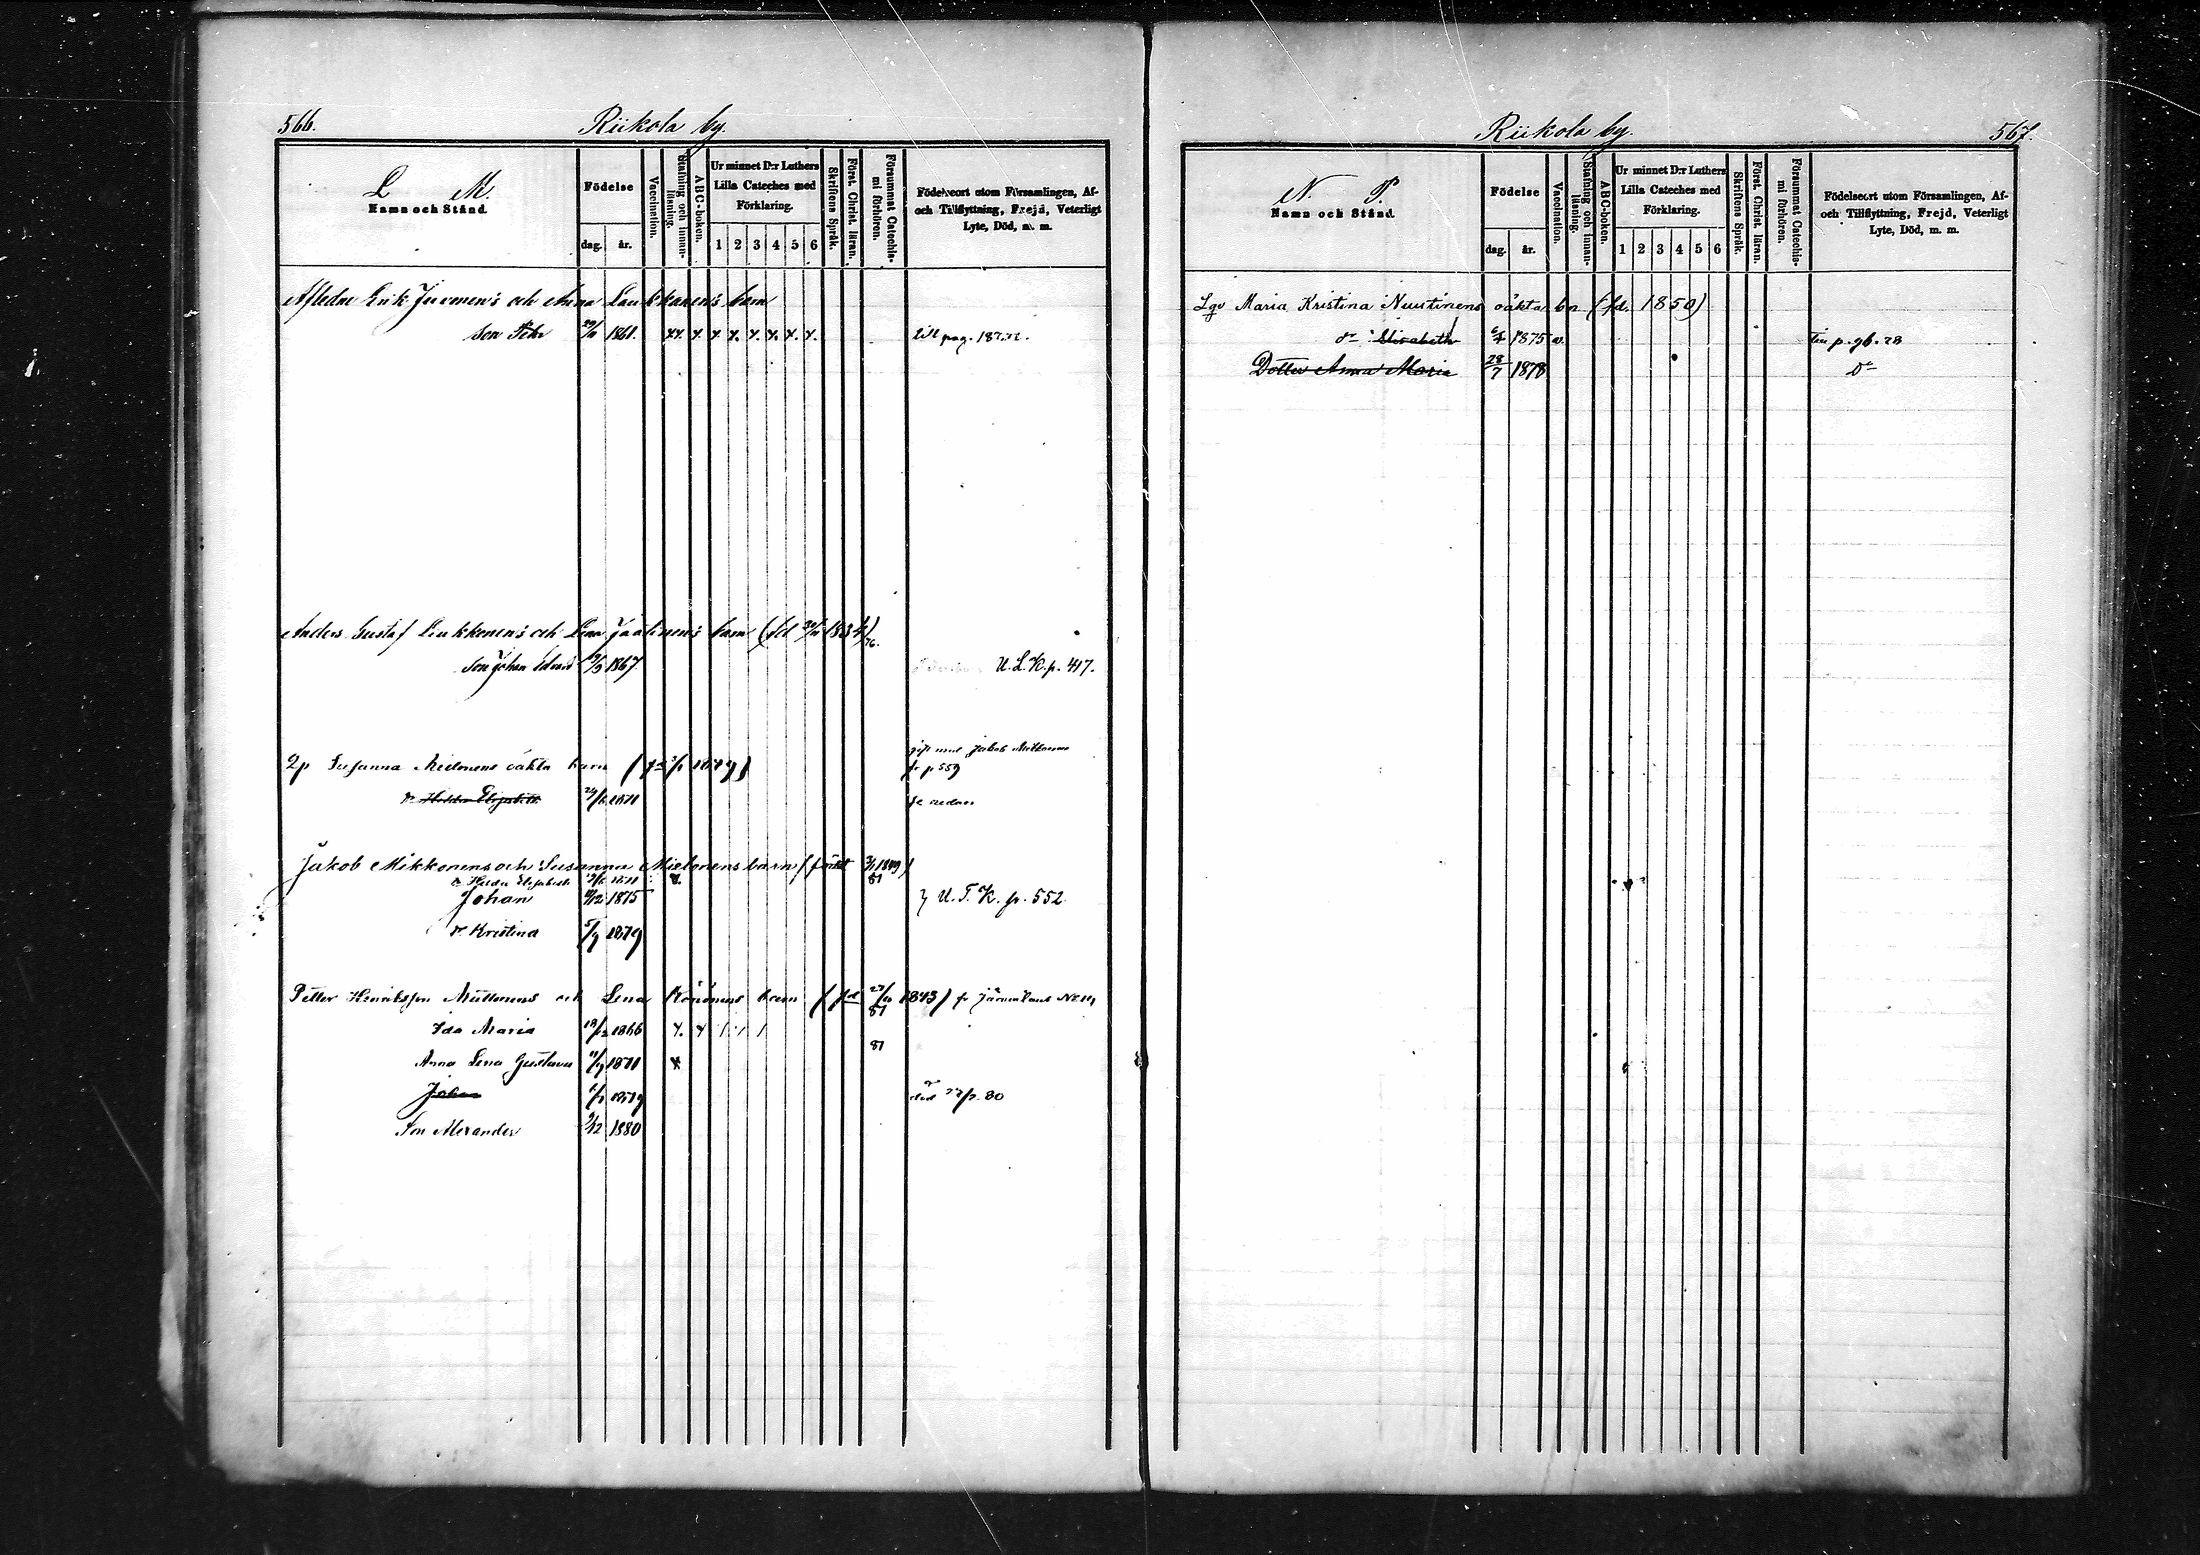 566.
Riikola by.
L M.
Namn och Stånd.
Födelse
dag. år.
Vaccination.
Stafning och Innanläsning.
ABC-boken.
Ur minnet D:r Luthers Lilla Cateches med Förklaring.
1 2 3 4 5 6
Skriftens Språk.
Först. Christ. läran.
Försummat Catechismi förhören.
Födelseort utom Församlingen, Af- och Tillflyttning, Frejd, Veterligt Lyte, Död, m. m.
Aflidne Erik Juvonen's och Anna Laukkanen's barn
Son Petr 1861. till pag.
Anders Gustaf Liukkonen's och Lena Jäälinen's barn (fd 1834) 76.
Son Johan Edvard 1867 U. L. K. p. 417.
Lp Susanna Mielonens oäkta barn gift med Jakob Mikkonen fr p 559
dr Hilda Elisabeth 24/ 1871 se nedan
Jakob Mikkonens och Susanna Mielonens barn 1849) 81
dr Hilda Elisabeth 1871
Johan /12 1875 U. T. K. p. 552
dr Kristina 5/9 1879
Petter Henriksson Muttonens och Lena Könönens barn (fd 1843) 81
Ida Maria 1866
Anna Lena Gustava 11/9 1871 81
Johan 1879 död 80
Son Alexander 9/12 1880
Riikola by.
567.
N. P.
Namn och Stånd.
Födelse
dag. år.
Vaccination.
Stafning och Innanläsning.
ABC-boken.
Ur minnet D:r Luthers Lilla Cateches med Förklaring.
1 2 3 4 5 6
Skriftens Språk.
Först. Christ. läran.
Försummat Catechismi förhören.
Födelseort utom Församlingen, Af- och Tillflyttning, Frejd, Veterligt Lyte, Död, m. m.
Lqv Maria Kristina Nuutinens oäkta bn (fd. 1850)
dr Elisabeth 1875 v. p. 96. 28
Dotter Anna Maria 28/7 1878 Do